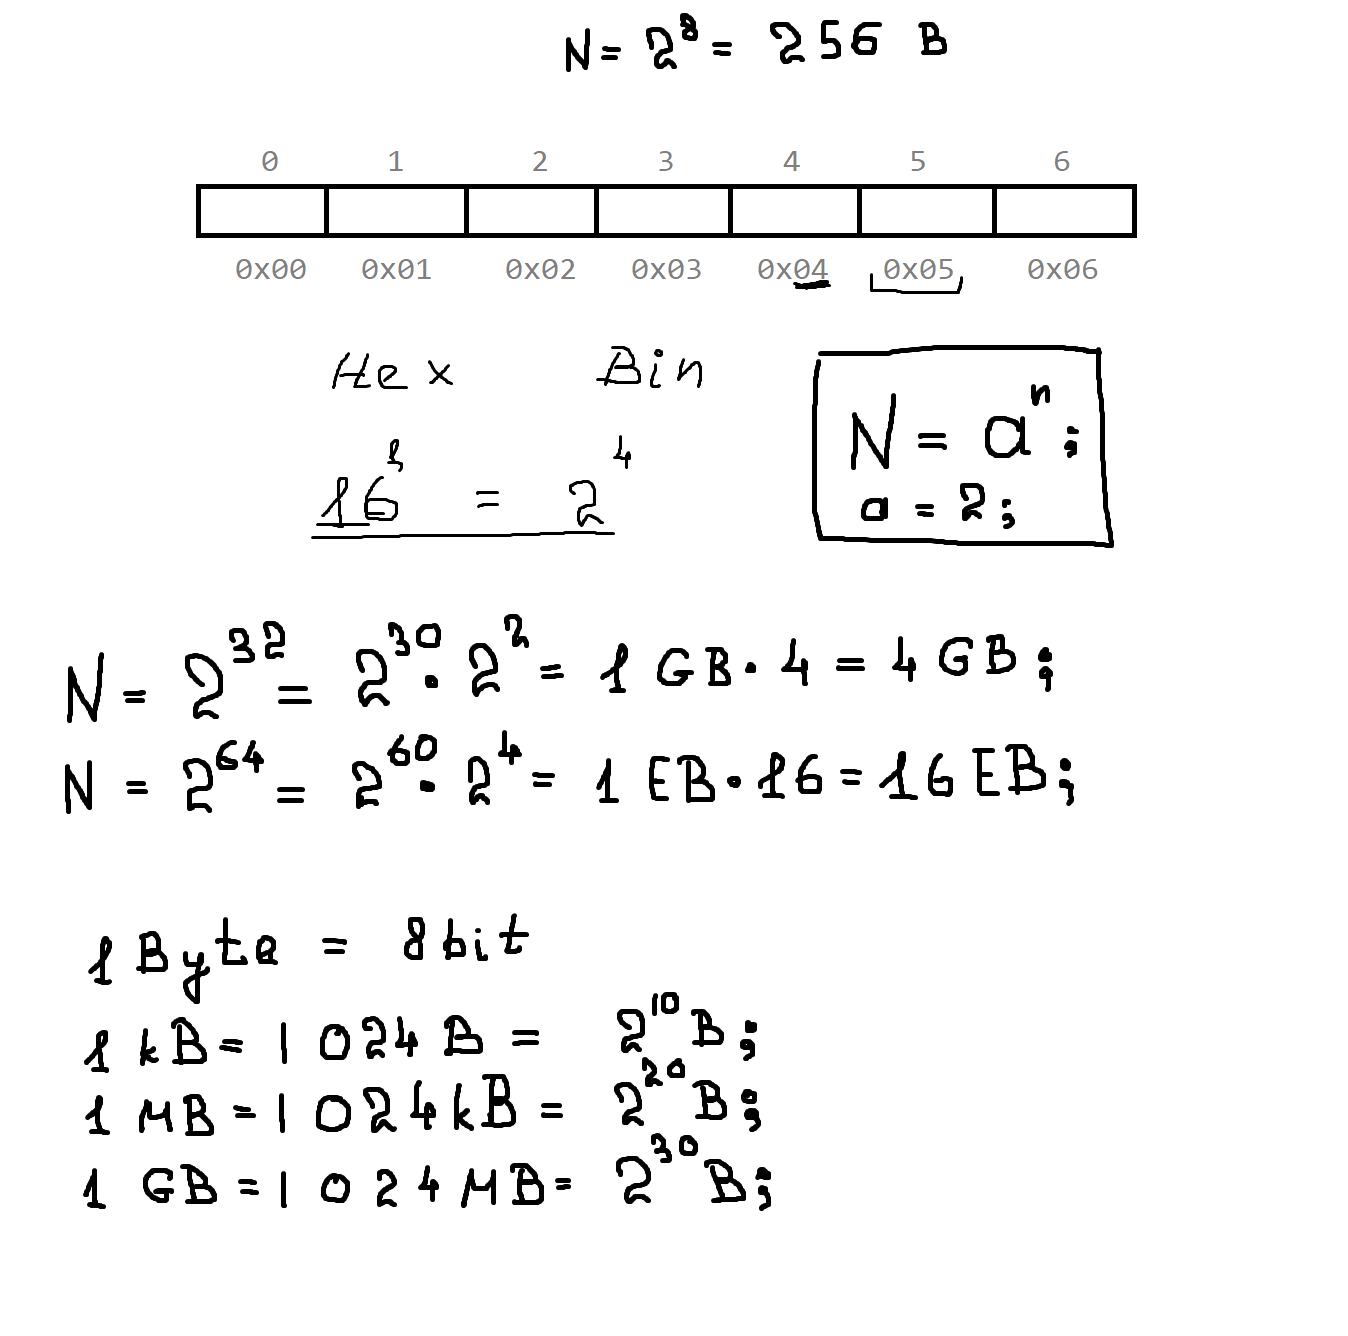 N = 2⁸ = 256 B
0 1 2 3 4 5 6
0x00 0x01 0x02 0x03 0x04 0x05 0x06
Hex Bin
16¹ = 2⁴
N = aⁿ;
a = 2;
N = 2³² = 2³⁰ · 2² = 1 GB · 4 = 4 GB;
N = 2⁶⁴ = 2⁶⁰ · 2⁴ = 1 EB · 16 = 16 EB;
1 Byte = 8bit
1 kB = 1024B = 2¹⁰B;
1 MB = 1024kB = 2²⁰B;
1 GB = 1024MB = 2³⁰B;